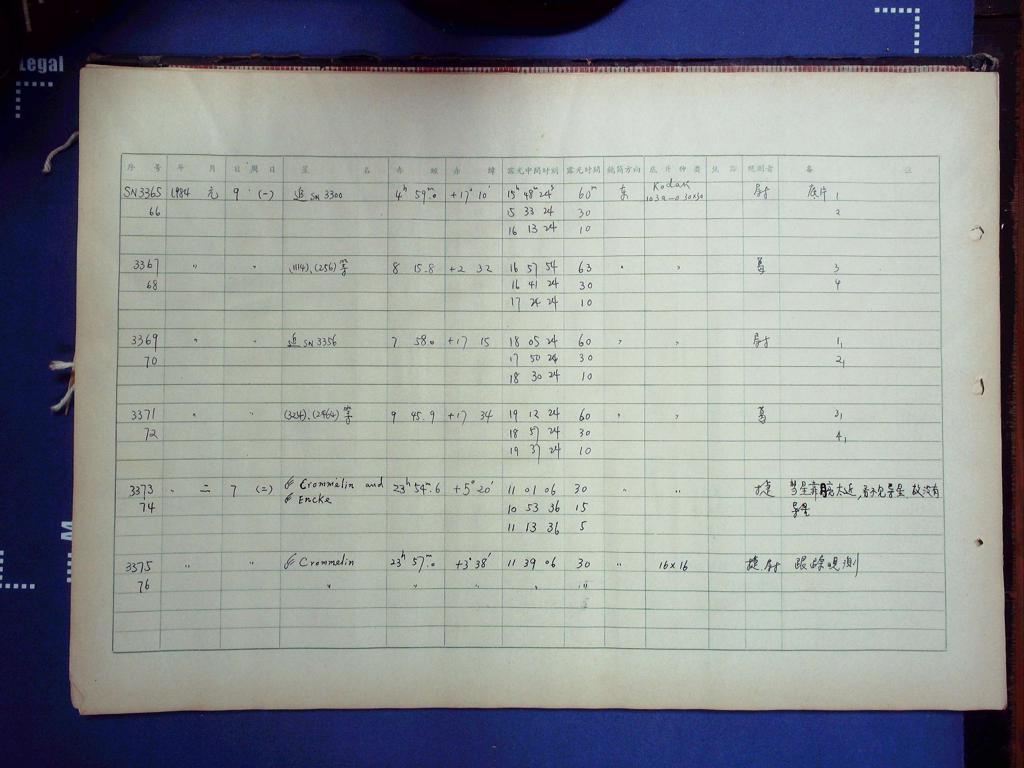 Legal
序 号 年 月 日 周 日 星 名 赤 經 赤 緯 露光中間时刻 露光时間 鏡筒方向 底 片 种 类 观测者 备 註
SN3365 1984 元 9 (一) 追 SN 3300 4ʰ 59ᵐ.0 +17° 10′ 15ʰ 48ᵐ 24ˢ 60ᵐ 东 Kodak 103a-O 30×30 底片 1
66 15 33 24 30 2
16 13 24 10
3367 〃 〃 (1114), (256) 等 8 15.8 +2 32 16 57 54 63 〃 〃 3
68 16 41 24 30 4
17 24 24 10
3369 〃 〃 追 SN 3356 7 58.0 +17 15 18 05 24 60 〃 〃 1
70 17 50 24 30 2
18 30 24 10
3371 〃 〃 (3234), (2464) 等 9 45.9 +17 34 19 12 24 60 〃 〃 3
72 18 57 24 30 4
19 37 24 10
3373 〃 二 7 (二) Crommelin and Encke 23ʰ 54ᵐ.6 +5° 20′ 11 01 06 30 〃 〃 捷 彗星靠月亮太近, 看不见导星, 故没有
74 10 53 36 15 导星
11 13 36 5
3375 〃 〃 Crommelin 23ʰ 57ᵐ.0 +3° 38′ 11 39 06 30 〃 16×16 捷 跟踪观测
76 〃 〃 〃 〃
M